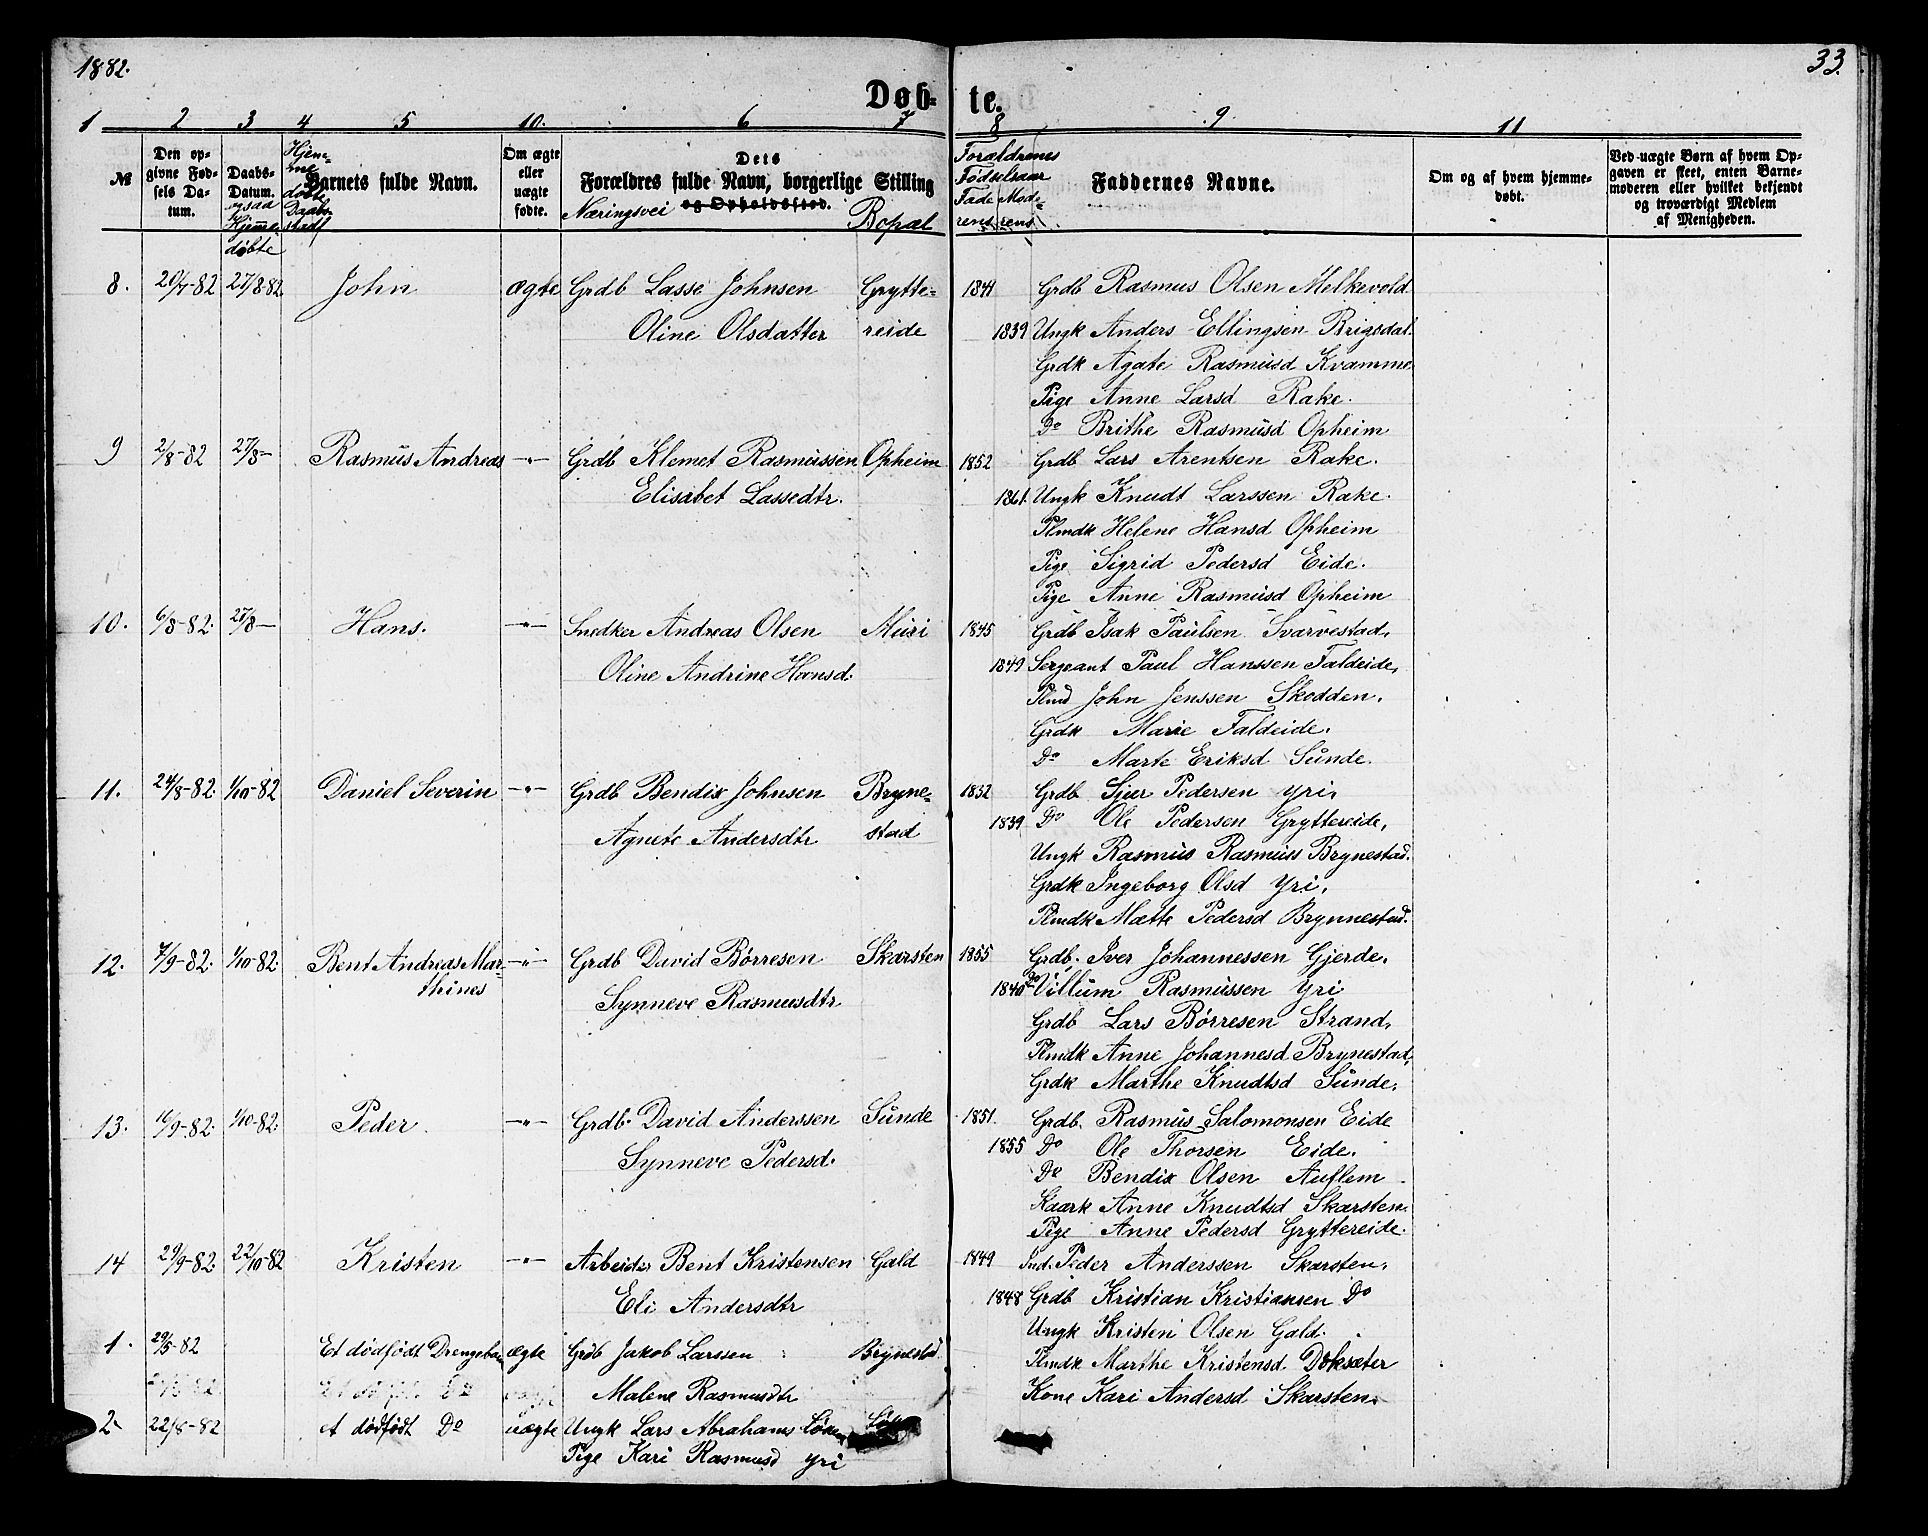 1882.
33.
Døb- te.
1 2 3 4 5 10. 6 7 8 9. 11
№
Den op-
givne Fød-
sels Da-
tum.
Daabs-
Datum.
ogsaa
Hjemme-
døbte
Hjem-
me
døbte
Daabs-
stad
Barnets fulde Navn.
Om ægte
eller
uægte
fødte.
Dets
Forældres fulde Navn, borgerlige Stilling
Næringsvei og Opholdssted.
Bopæl
Forældrenes
Fødselsaar
Fade- Mod-
rens rens
Faddernes Navne.
Om og af hvem hjemme-
døbt.
Ved uægte Børn af hvem Op-
gaven er skeet, enten Barne-
moderen eller hvilket bekjendt
og troværdigt Medlem
af Menigheden.
8. 27/8-82 John ægte Grdb Lasse Johnsen Grytte- 1841 Grdb Rasmus Olsen Melkevold
Oline Olsdatter reide 1839 Ungk Anders Ellingsen Brigsdal.
Grdk Agate Rasmusd Kvamme
Pige Anne Larsd Rake.
Do Brithe Rasmusd Opheim
9 2/8-82 27/8- Rasmus Andreas -"- Grdb Klemet Rasmussen Opheim 1852 Grdb Lars Arentsen Rake.
Elisabet Lassedtr. 1861. Ungk Knudt Larssen Rake.
Plmdk Helene Hansd Opheim
Pige Sigrid Pedersd Eide.
Pige Anne Rasmusd Opheim
10. 6/8-82. 27/8- Hans. -"- Snedker Andreas Olsen Muri 1845 Grdb Isak Paulsen Svarvestad,
Oline Andrine Hansd. 1849 Sergeant Paul Hanssen Faldeide,
Plmd John Jenssen Skodden.
Grdk Marie Faldeide.
Do Marte Eriksd Sunde.
11. 24/8-82. 1/10-82 Daniel Severin -"- Grdb Bendix Johnsen Bryne- 1852 Grdb Sjur Pedersen Yri,
Agnete Andersdtr stad 1839 Do Ole Pedersen Gryttereide,
Ungk Rasmus Rasmuss Brynestad.
Grdk Ingeborg Olsd Yri,
Plmdk Mætte Pedersd Brynnestad.
12. 7/9-82. 1/10-82. Bent Andreas Mar- -"- Grdb David Børresen Skarsten 1855 Grdb. Iver Johannessen Gjerde.
thines Synneve Rasmusdtr 1840 Do Villum Rasmussen Yri
Grdb Lars Børresen Strand,
Plmdk Anne Johannesd Brynestad,
Grdk Marthe Knudtsd Sunde,
13. 16/9-82. 1/10-82. Peder. -"- Grdb. David Anderssen Sunde 1851. Grdb. Rasmus Salomonsen Eide
Synneve Pedersd. 1855 Do Ole Thorsen Eide.
Do Bendix Olsen Auflem
Kaark Anne Knudtsd Skarsten.
Pige Anne Pedersd Gryttereide.
14 29/9-82. 22/10-82 Kristen -"- Arbeider Bent Kristensen Gald 1849 Ind. Peder Anderssen Skarsten,
Eli Andersdtr 1848 Grdb Kristian Kristiansen Do
Ungk Kristen Olsen Gald.
1. 29/5-82 Et dødfødt Drengeba ægte Grdb Jakob Larssen Brynestad. Plmdk Marthe Kristensd. Døksæter
Malene Rasmusdtr Kone Kari Andersd Skarsten.
2 22/8-82 et dødfødt Do uægte Ungk Lars Abrahams
Pige Kari Rasmusd Yri